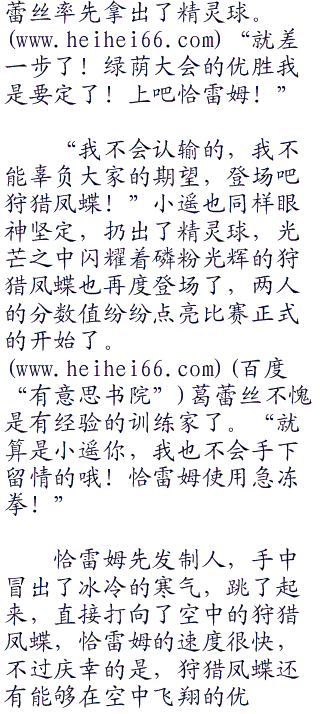 蕾丝率先拿出了精灵球。
(www.heihei66.com)“就差
一步了！绿荫大会的优胜我
是要定了！上吧恰雷姆！”
“我不会认输的，我不
能辜负大家的期望，登场吧
狩猎凤蝶！”小遥也同样眼
神坚定，扔出了精灵球，光
芒之中闪耀着磷粉光辉的狩
猎凤蝶也再度登场了，两人
的分数值纷纷点亮比赛正式
的开始了。
(www.heihei66.com)(百度
“有意思书院”)葛蕾丝不愧
是有经验的训练家了。“就
算是小遥你，我也不会手下
留情的哦！恰雷姆使用急冻
拳！”
恰雷姆先发制人，手中
冒出了冰冷的寒气，跳了起
来，直接打向了空中的狩猎
凤蝶，恰雷姆的速度很快，
不过庆幸的是，狩猎凤蝶还
有能够在空中飞翔的优